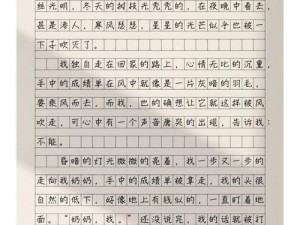 丝光明,冬天的树枝光秃秃的,在夜晚中看去,
甚是渗人,寒风瑟瑟,星星的光芒似乎也被一
下子吹灭了。
我独自走在回家的路上,心情无比的沉重,
手中的成绩单在风中就像是一片灰暗的羽毛,
要乘风而去,而我,也的确想让它就这样被风
吹走,可心中有一个声音唐突的出现,告诉我:
不能。
昏暗的灯光微微的亮着,我一步又一步的
走向我奶奶,手中的成绩单被拿走,我的头很
自然的低下,好像地上有钱似的,一直盯着地
面。“奶奶,我。”还没说完,我的话就被打